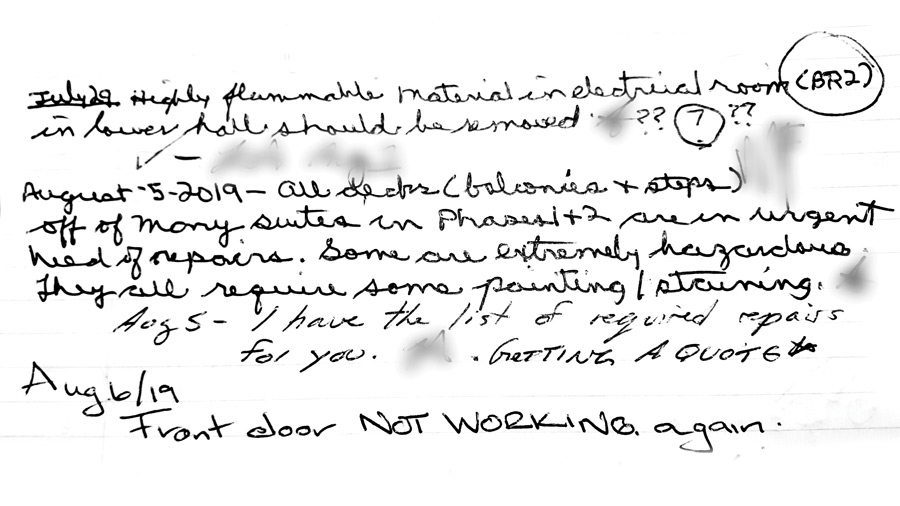 July 29 Highly flammable material in electrical room (BR2)
in lower hall should be removed ?? 7 ??
August-5-2019 - All decks (balconies + steps)
off of many suites in Phases 1+2 are in urgent
need of repairs. Some are extremely hazardous.
They all require some painting / staining.
Aug 5 - I have the list of required repairs
for you. . GETTING A QUOTE
Aug 6/19
Front door NOT WORKING. again.